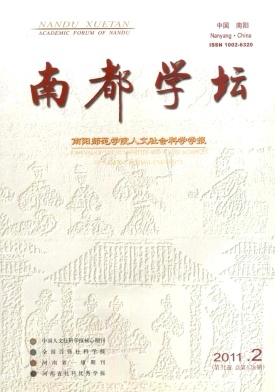 NANDU XUETAN
ACADEMIC FORUM OF NANDU
中国 南阳
Nanyang · China
ISSN 1002-6320
南都学坛
南阳师范学院人文社会科学学报
中国人文社会科学核心期刊
全国百强社科学报
河南省一级期刊
河南省社科优秀学报
2011.2